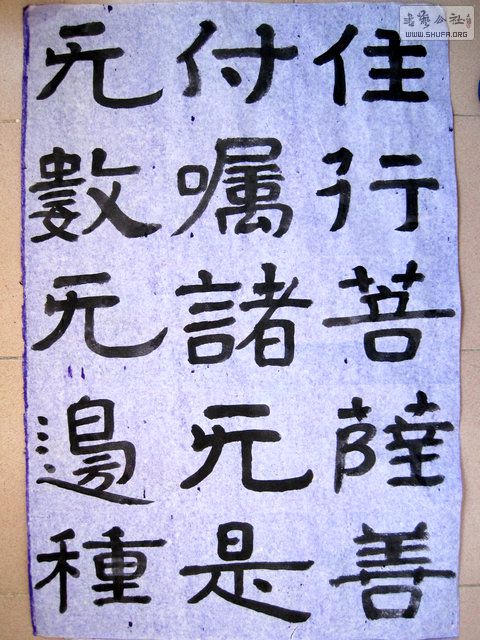 住行菩薩善
付嘱諸无是
无數无邊種
書藝公社
WWW.SHUFA.ORG